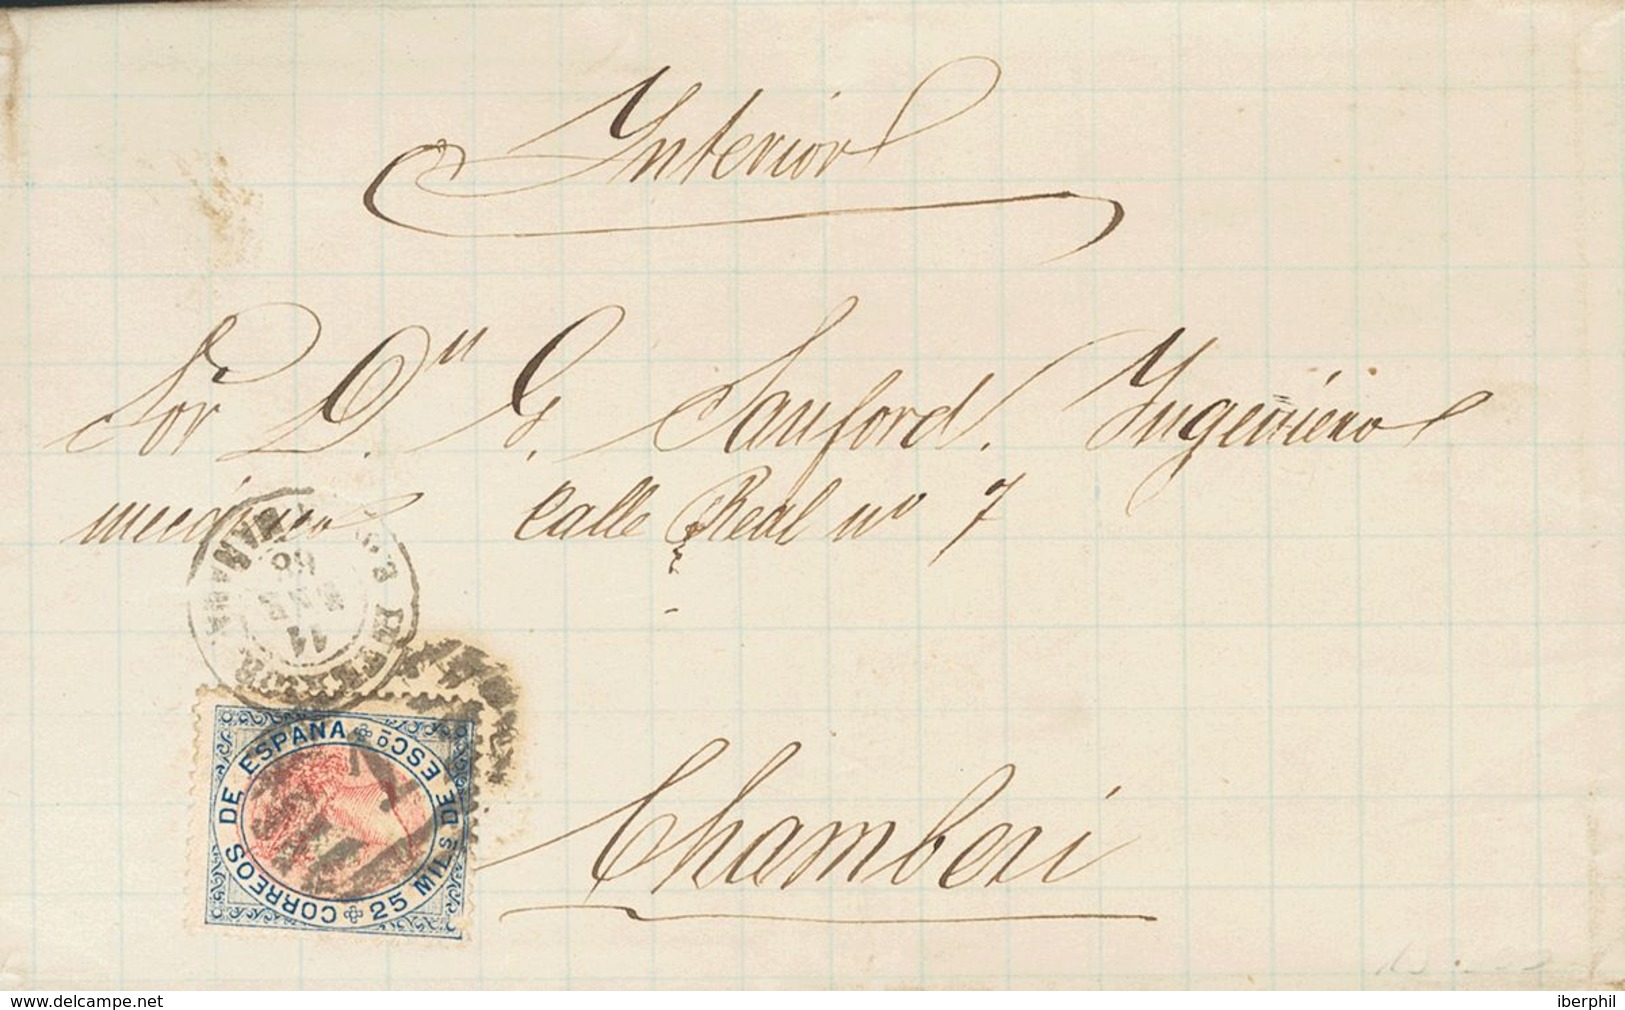 Interior
Sor Dn. G. Sanford. Ingeniero
mecánico Calle Real nº 7
11
ENE
68
CORREOS DE ESPAÑA
25 MIL S DE ESCO
Chamberi
www.delcampe.net
iberphil